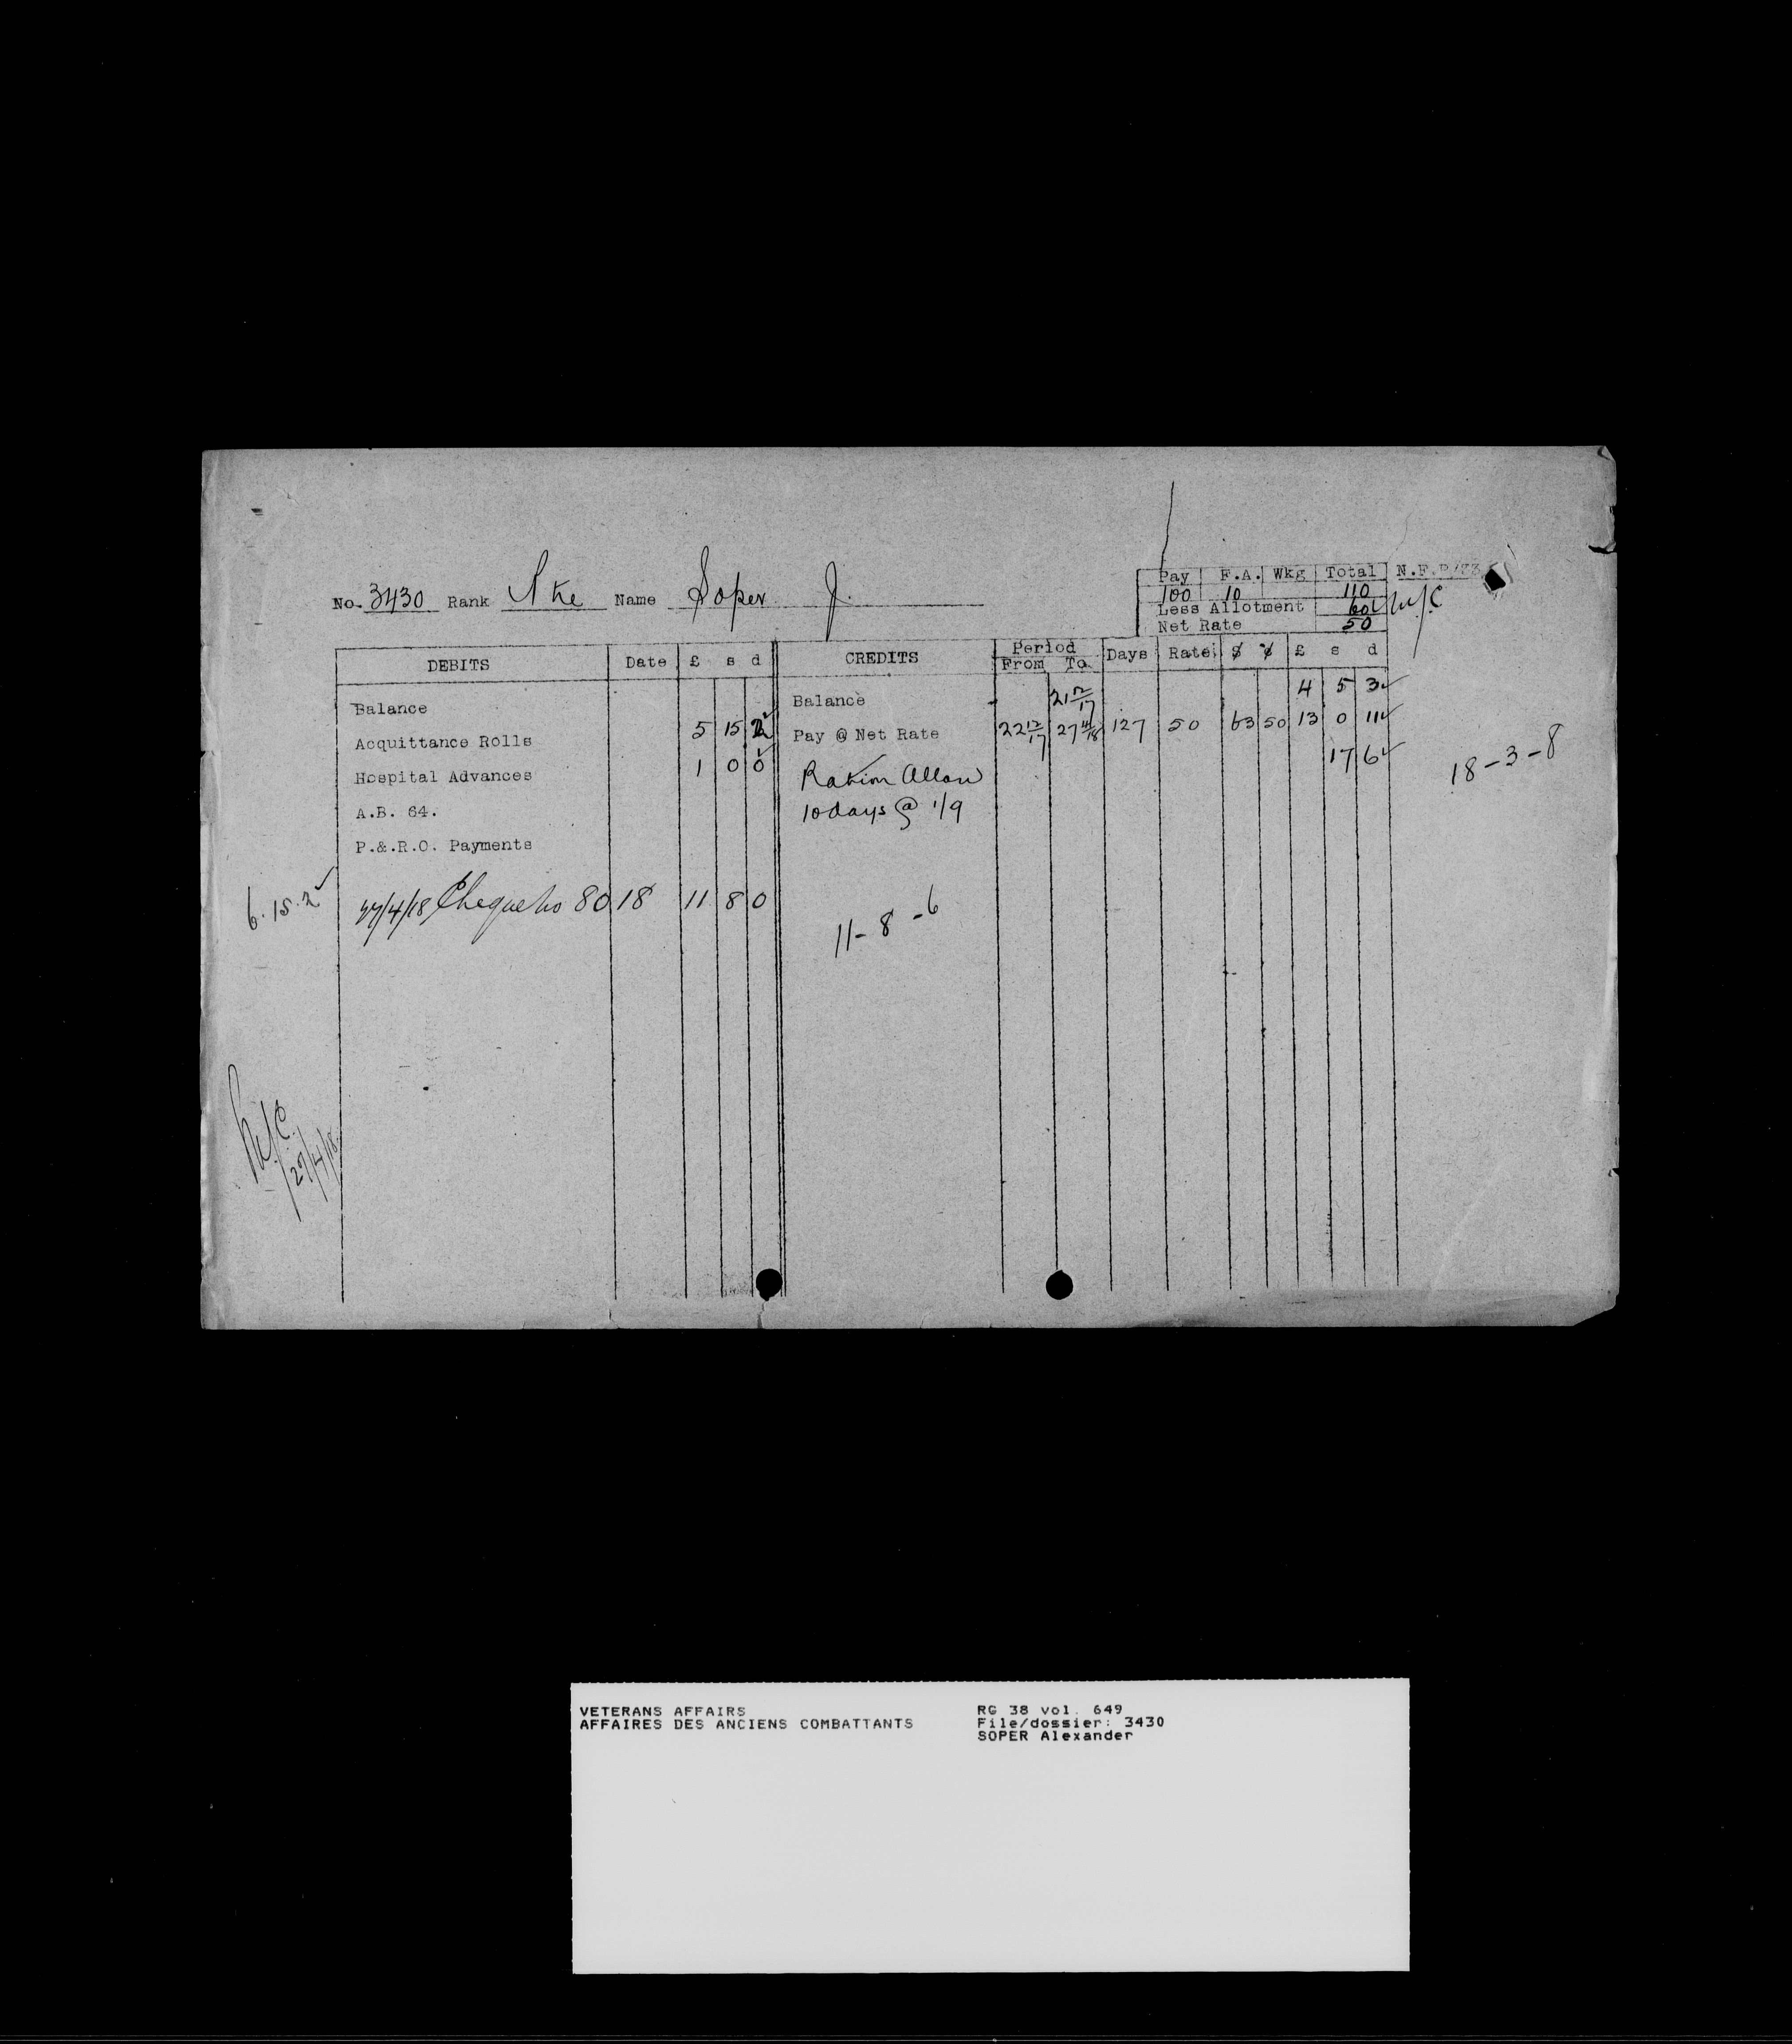 No. 3430 Rank Pte Name Soper J.
Pay F.A. Wkg Total N.F.P/33
100 10 110
Less Allotment 60
Net Rate 50
DEBITS Date £ s d CREDITS Period From To Days Rate $ ¢ £ s d
Balance Balance 21 12/17 4 5 3
Acquittance Rolls 5 15 2 Pay @ Net Rate 22 12/17 27 4/18 127 50 63 50 13 0 11
Hospital Advances 1 0 0 Ration Allow 17 6
18-3-8
A.B. 64. 10 days @ 1/9
P.&.R.O. Payments
6.15.2 27/4/18 Cheque No 8018 11 8 0
11-8-6
27/4/18
VETERANS AFFAIRS
AFFAIRES DES ANCIENS COMBATTANTS
RG 38 vol. 649
File/dossier: 3430
SOPER Alexander